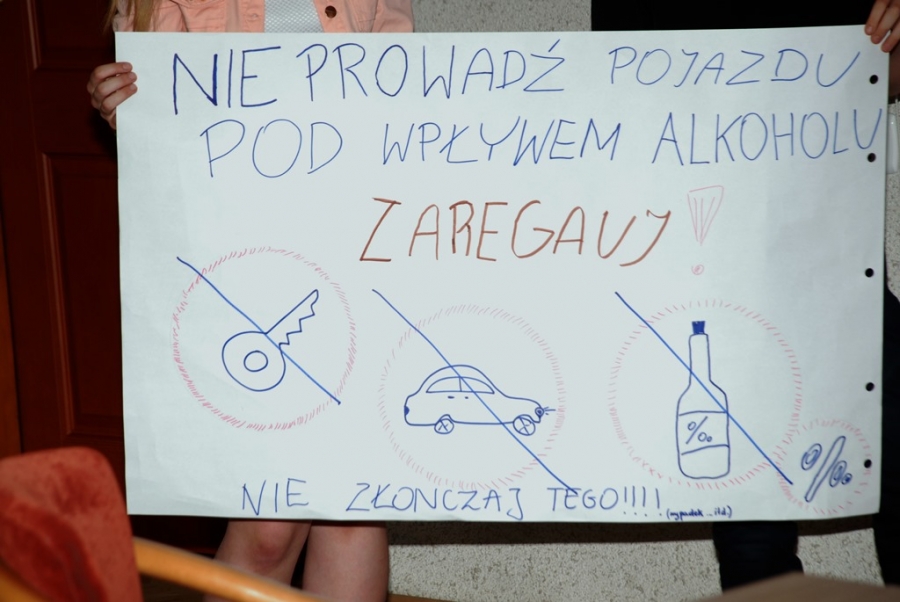 NIE PROWADŹ POJAZDU
POD WPŁYWEM ALKOHOLU
ZAREGAUJ !
%.
%.
NIE ZŁONCZAJ TEGO!!!!
(wypadek _ itd.)